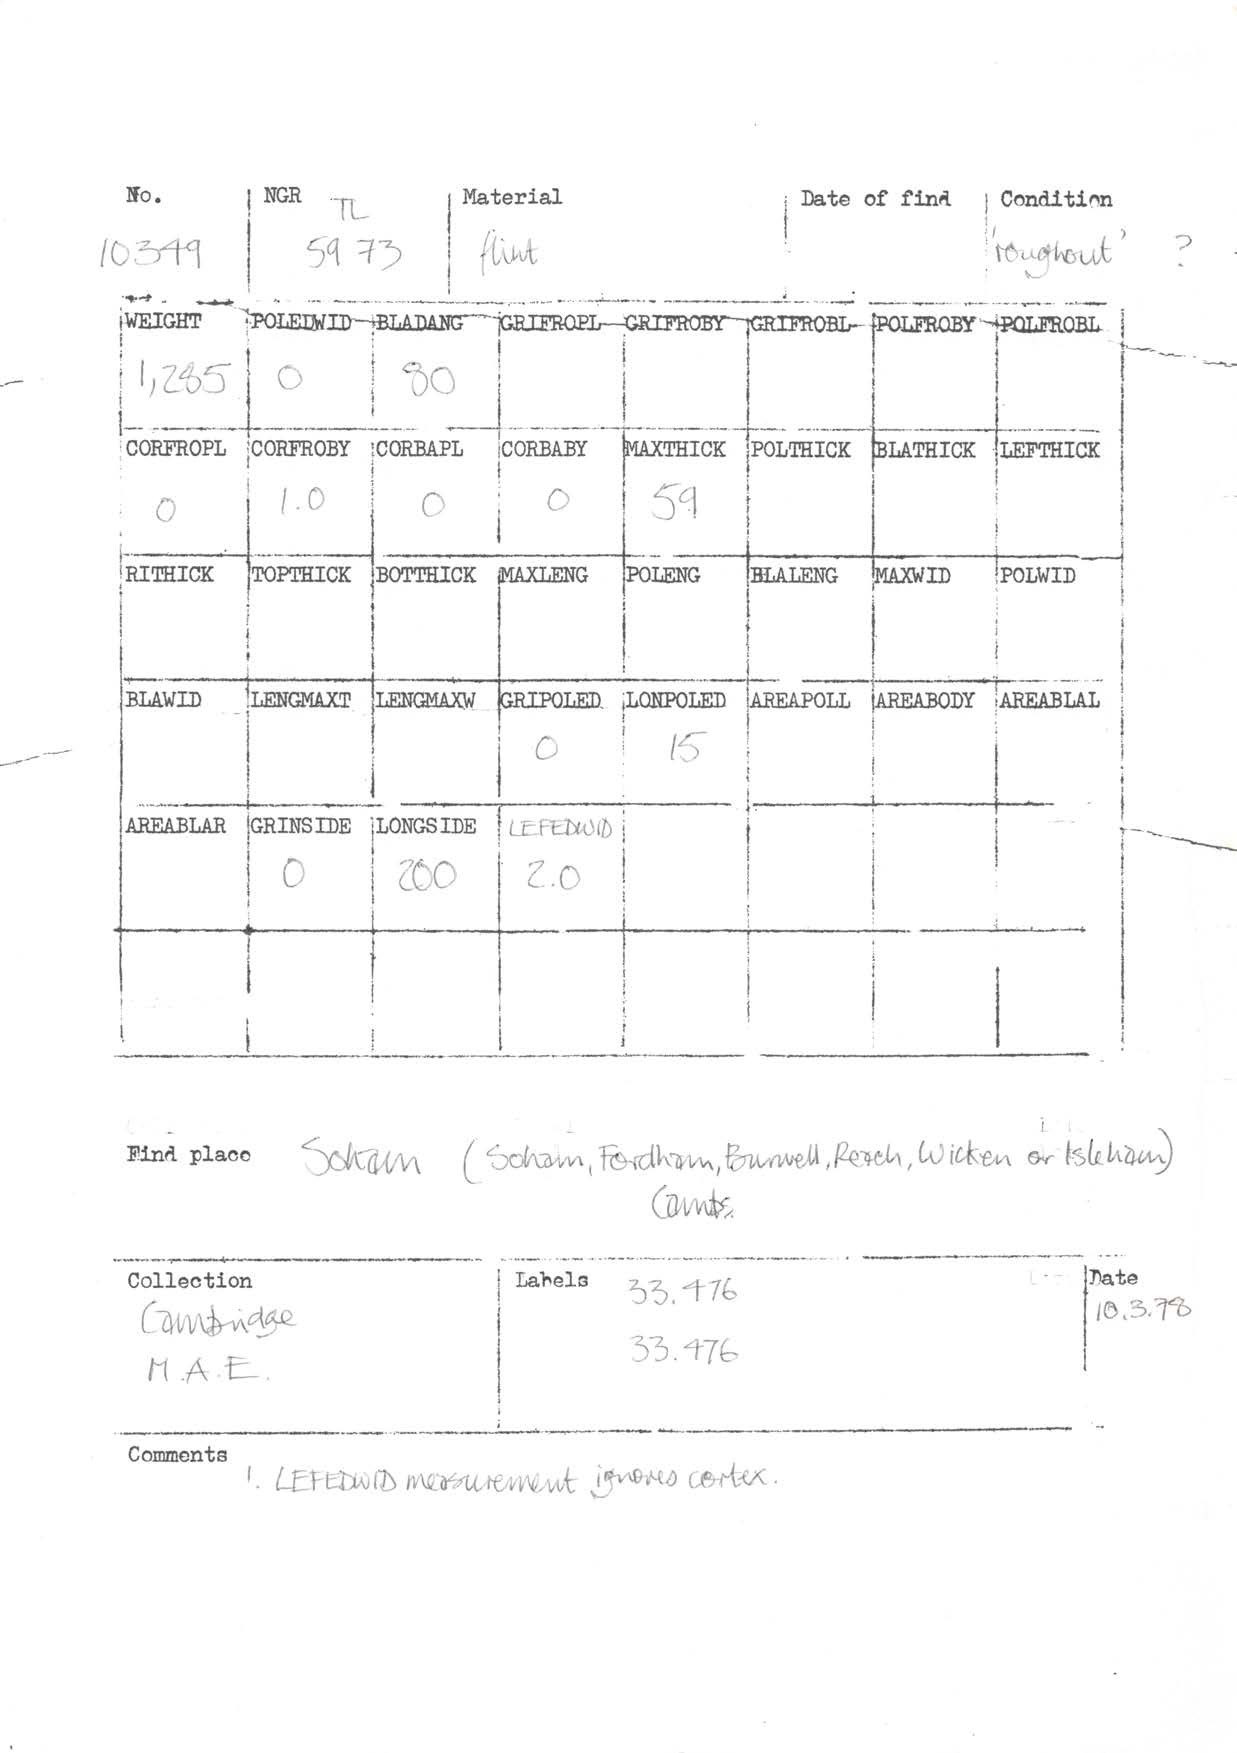 No. NGR TL Material Date of find Condition
10349 59 73 flint 'roughout' ?
WEIGHT POLEDWID BLADANG GRIFROPL GRIFROBY GRIFROBL POLFROBY POLFROBL
1,285 0 80
CORFROPL CORFROBY CORBAPL CORBABY MAXTHICK POLTHICK BLATHICK LEFTHICK
0 1.0 0 0 59
RITHICK TOPTHICK BOTTHICK MAXLENG POLENG BLALENG MAXWID POLWID
BLAWID LENGMAXT LENGMAXW GRIPOLED LONPOLED AREAPOLL AREABODY AREABLAL
0 15
AREABLAR GRINSIDE LONGSIDE LEFEDWID
0 200 2.0
Find place Soham (Soham, Fordham, Burwell, Reach, Wicken or Isleham)
Cambs.
Collection Labels 33.476 Date
Cambridge 10.3.78
M.A.E. 33.476
Comments
1. LEFEDWID measurement ignores cortex.